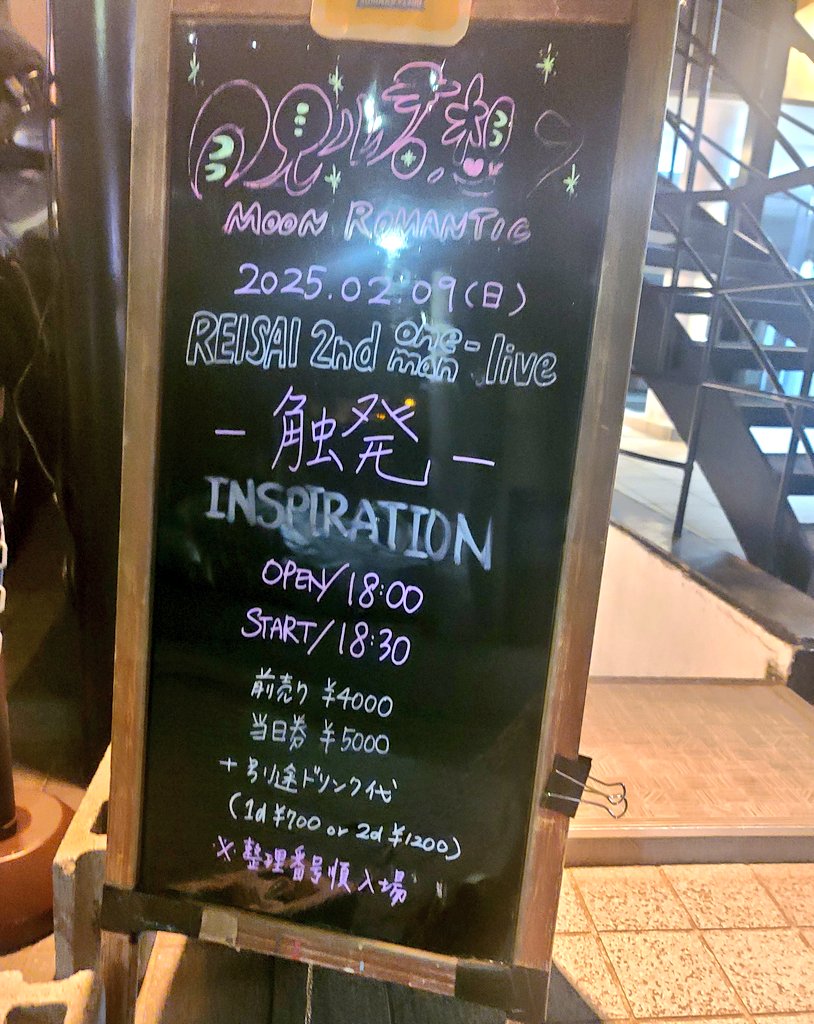 月見ル君想フ
MOON ROMANTIC
2025.02.09(日)
REISAI 2nd one-man live
- 触発 -
INSPIRATION
OPEN/18:00
START/18:30
前売り ¥4000
当日券 ¥5000
+ 別途ドリンク代
(1d ¥700 or 2d ¥1200)
※整理番号順入場